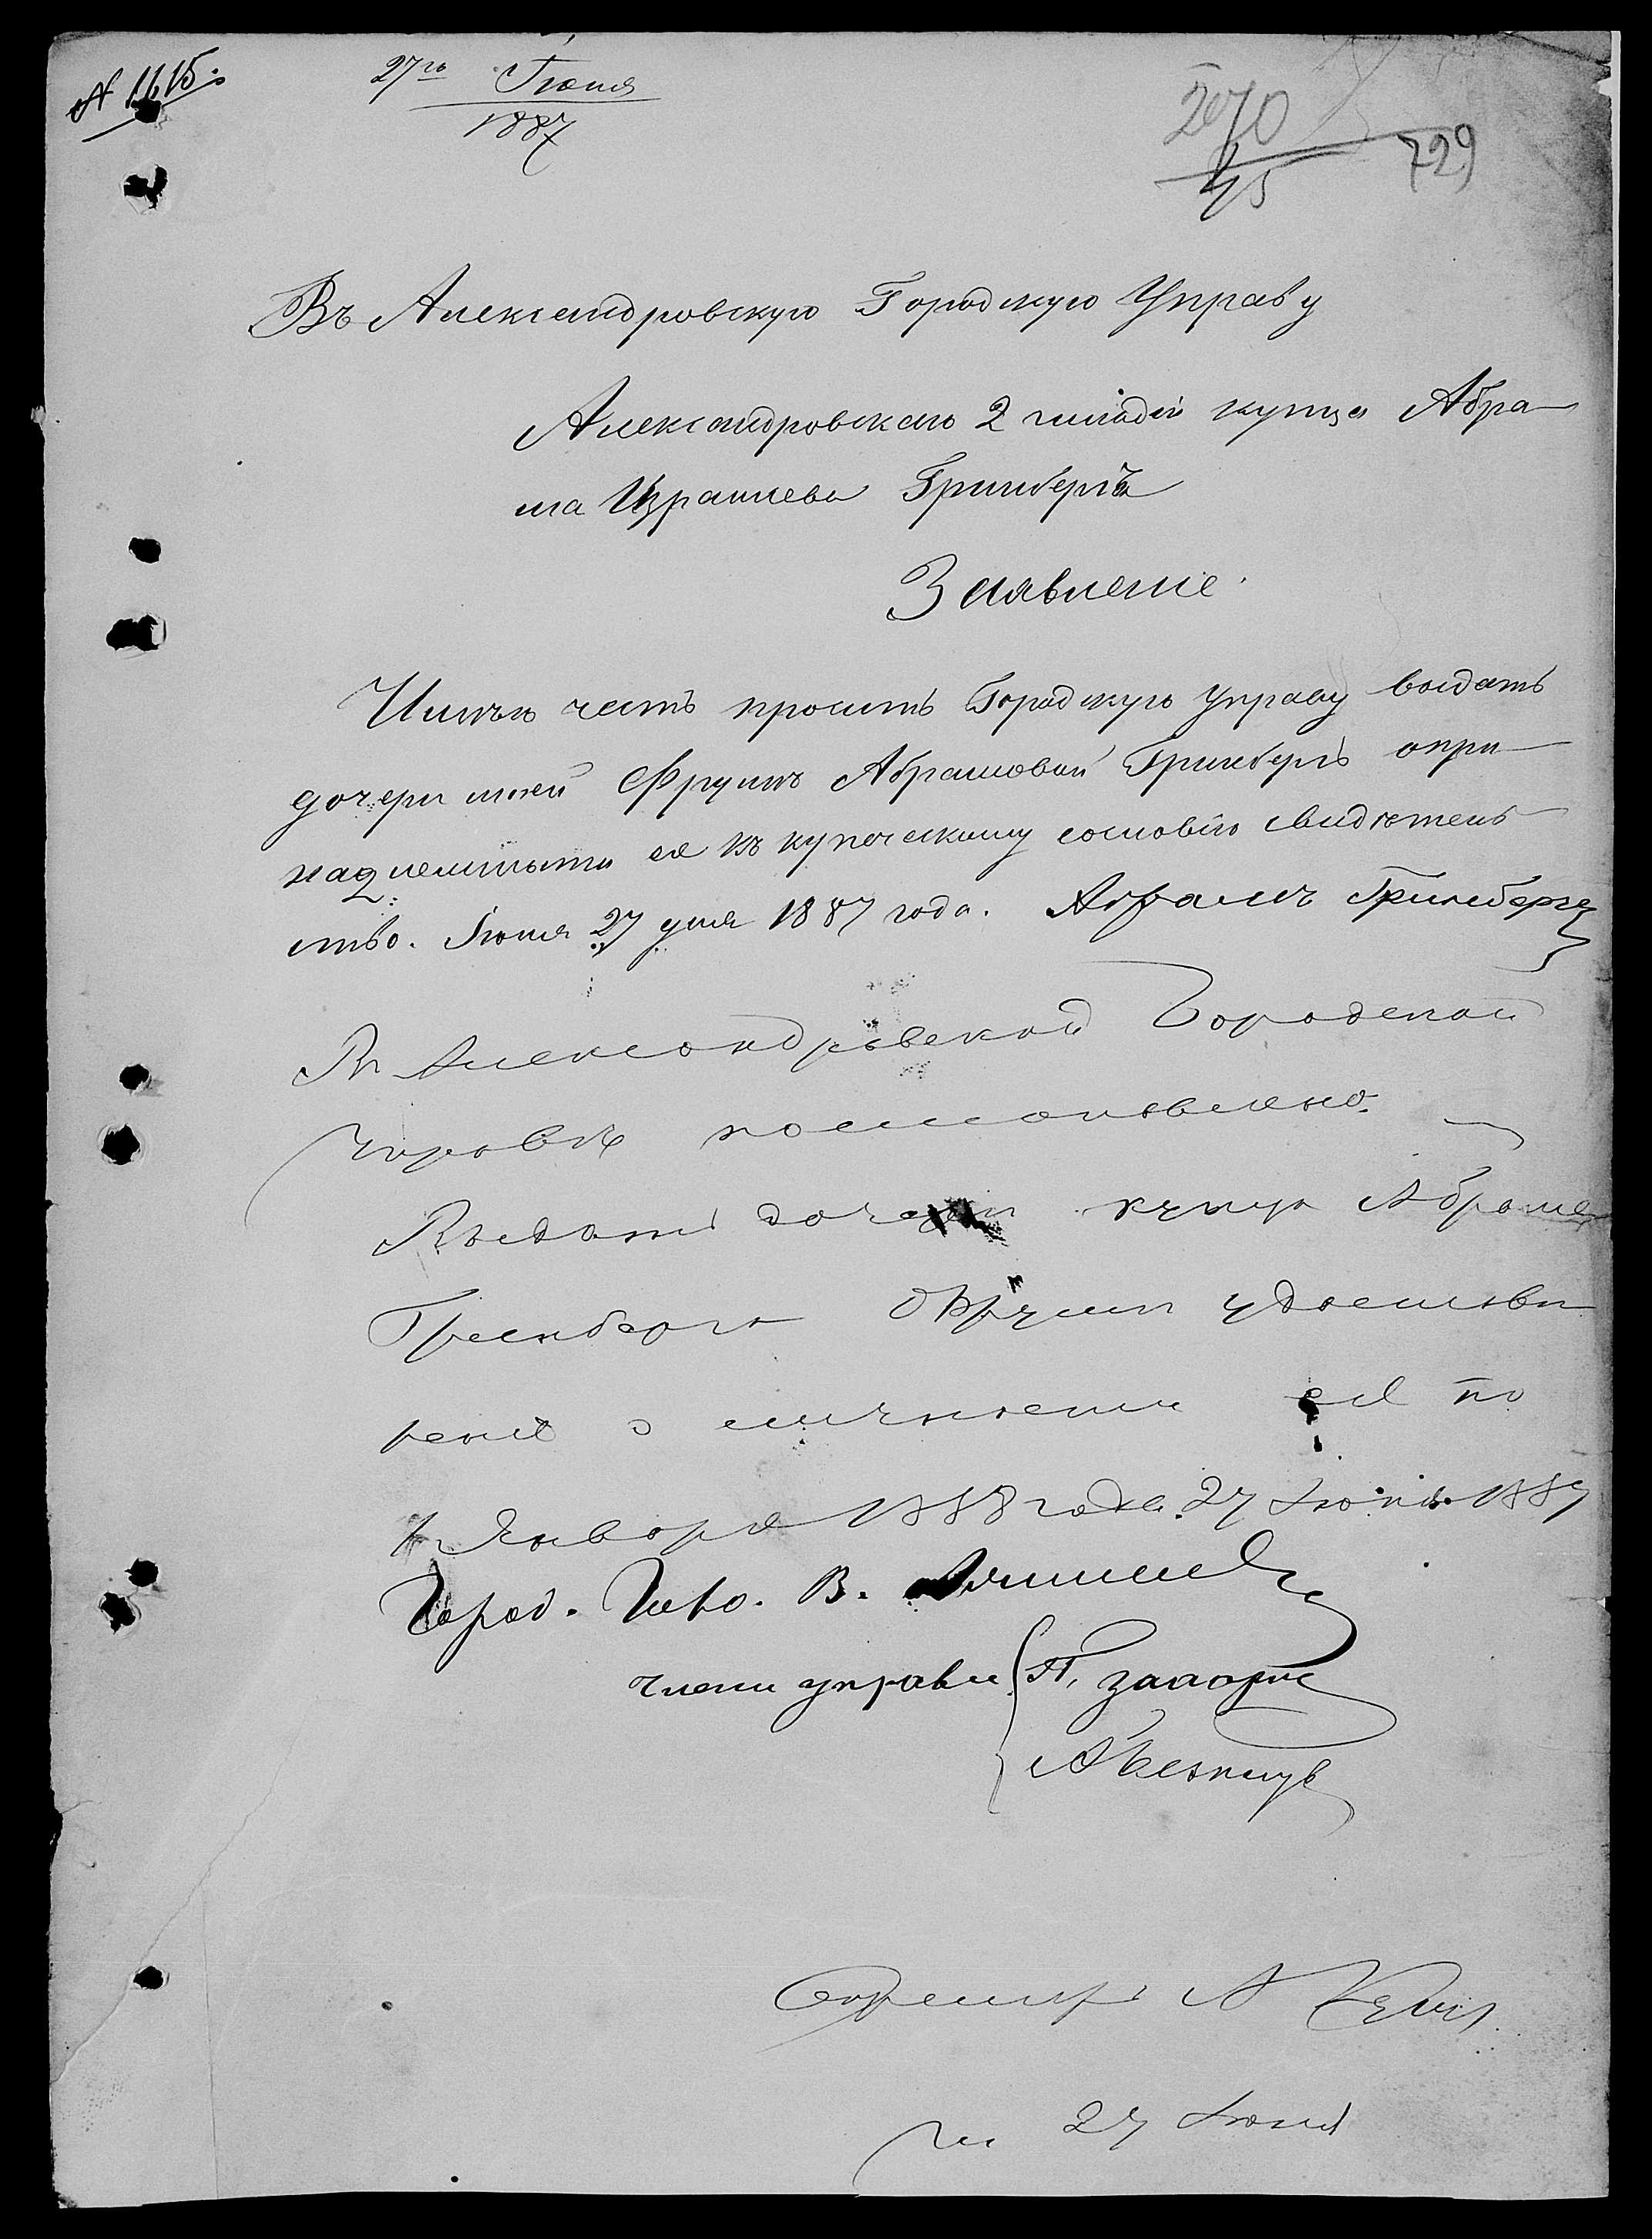 № 1115.
27го Іюня
1887
2070
45
729
Въ Александровскую Городскую Управу
Александровскаго 2 гильдіи купца Абра
ма Израилева Гринберга
Заявленіе
Имѣю честь просить Городскую управу выдать
дочери моей Фрумѣ Абрамовой Гринбергъ о при
надлежности ея къ купеческому сословію свидѣтель
ство. Іюня 27 дня 1887 года. Абрамъ Гринберг
Въ Александровской Городской
Управѣ постановлено:
Выдать дочери купца Абрама
Гринберга Фруми удостовѣ
реніе о личности ея по
1 Января 1888 года. 27 Іюня 1887
Город. Голо. В.
члены управы П.
А
Секретарь А
27 Іюня